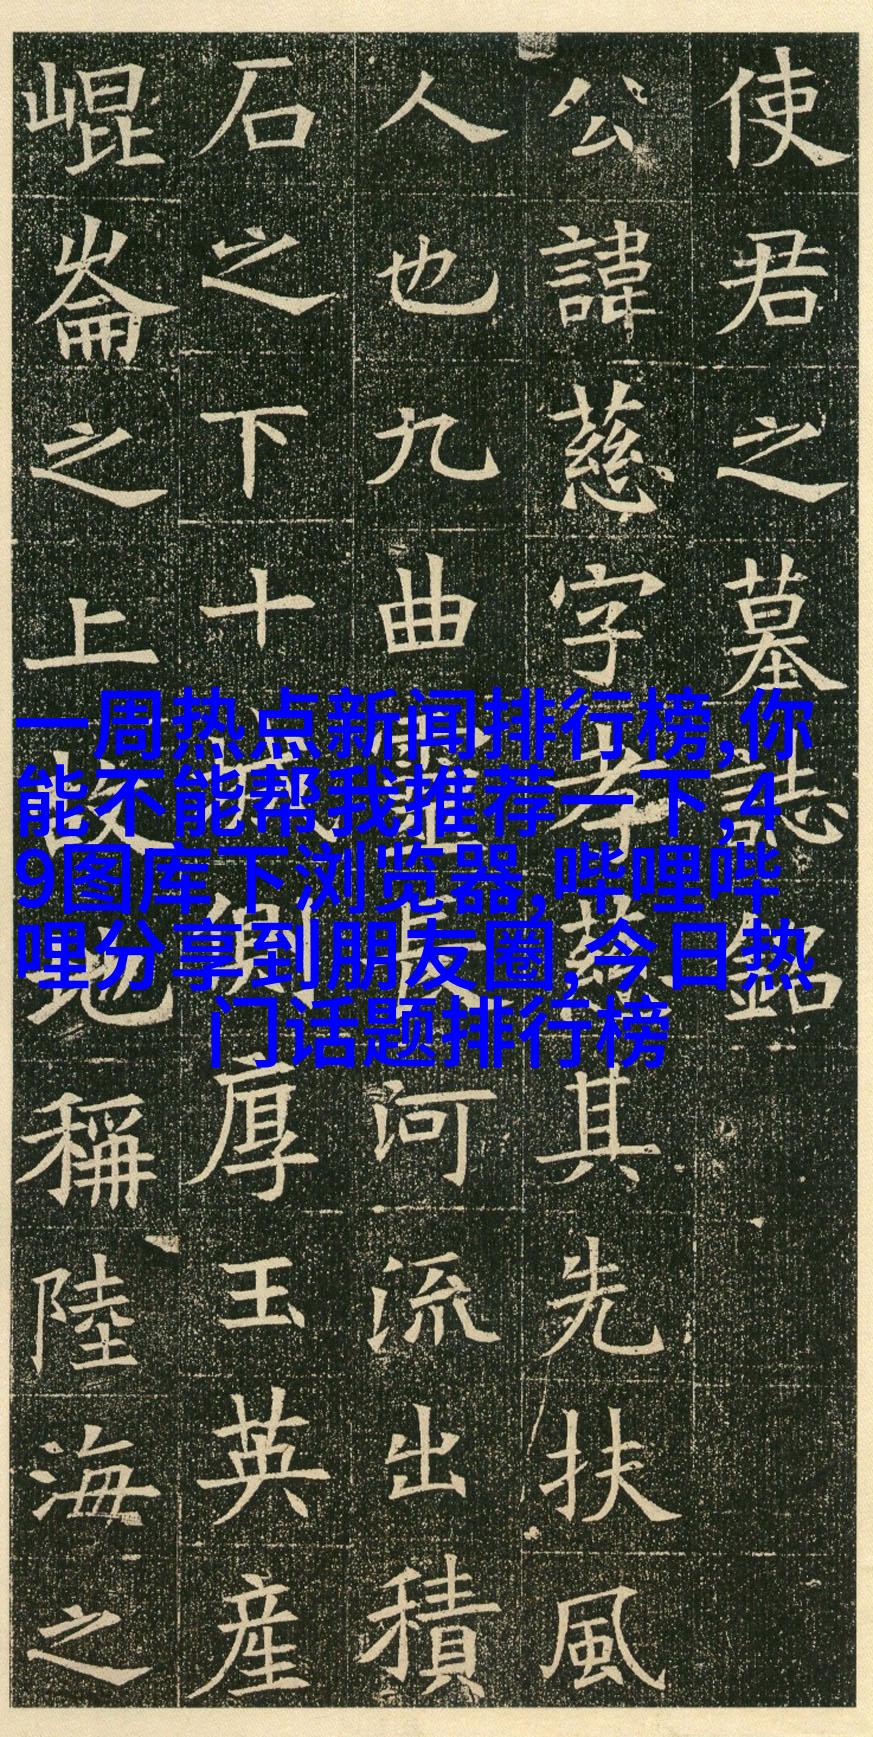 使君之墓誌銘
公諱慈字孝慈其先扶風
人也九曲長河流出積
石之下十厚玉英産
崐崙之上故地稱陸海之
一周热点新闻排行榜,你
能不能帮我推荐一下,4
9图库下浏览器,哔哩哔
哩分享到朋友圈,今日热
门话题排行榜